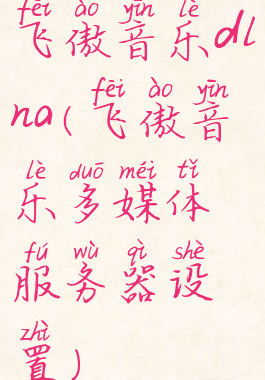 fēi ào yīn lè
飞傲音乐dl
fēi ào yīn
na(飞傲音
lè duō méi tǐ
乐多媒体
fú wù qì shè
服务器设
zhì
置)